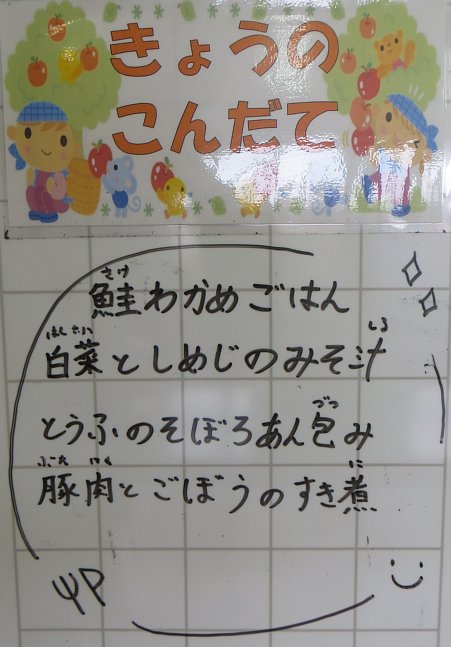 きょうの
こんだて
さけ
鮭わかめごはん
はくさい しる
白菜としめじのみそ汁
づつ
とうふのそぼろあん包み
ぶた にく に
豚肉とごぼうのすき煮